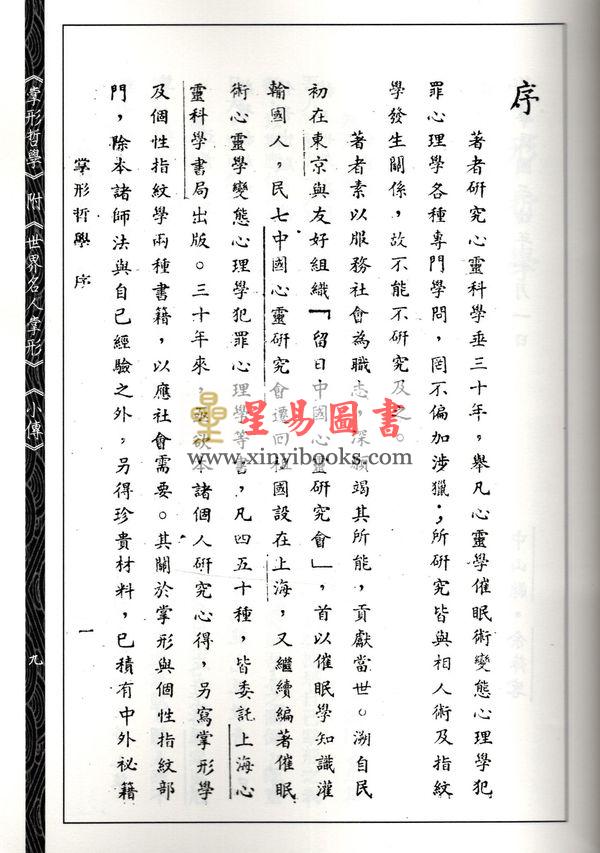 序
著者研究心靈科學垂三十年，舉凡心靈學催眠術變態心理學犯
罪心理學各種專門學問，罔不偏加涉獵；所研究皆與相人術及指紋
學發生關係，故不能不研究及之。
著者素以服務社會為職志，深願竭其所能，貢獻當世。溯自民
初在東京與友好組織「留日中國心靈研究會」，首以催眠學知識灌
輸國人，民七中國心靈研究會遷回祖國設在上海，又繼續編著催眠
術心靈學變態心理學犯罪心理學等書，凡四五十種，皆委託上海心
靈科學書局出版。三十年來，亟欲本諸個人研究心得，另寫掌形學
及個性指紋學兩種書籍，以應社會需要。其關於掌形與個性指紋部
門，除本諸師法與自己經驗之外，另得珍貴材料，已積有中外祕籍
掌形哲學 序
一
《掌形哲學》附《世界名人掌形》《小傳》
九
星易圖書
www.xinyibooks.com